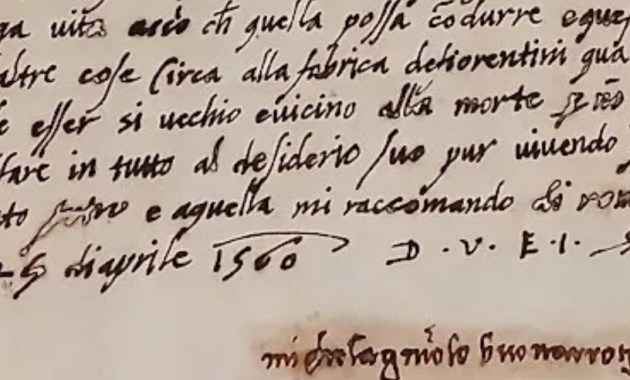 ga vita accio ch quella possa codurre
altre cose circa alla fabrica defiorentini qua
e esser si vechio evicino alla morte
fare in tutto al desiderio suo pur vivendo
e aquella mi raccomando di rom
di aprile 1560 D . V . E . I .
michelagniolo buonarroti